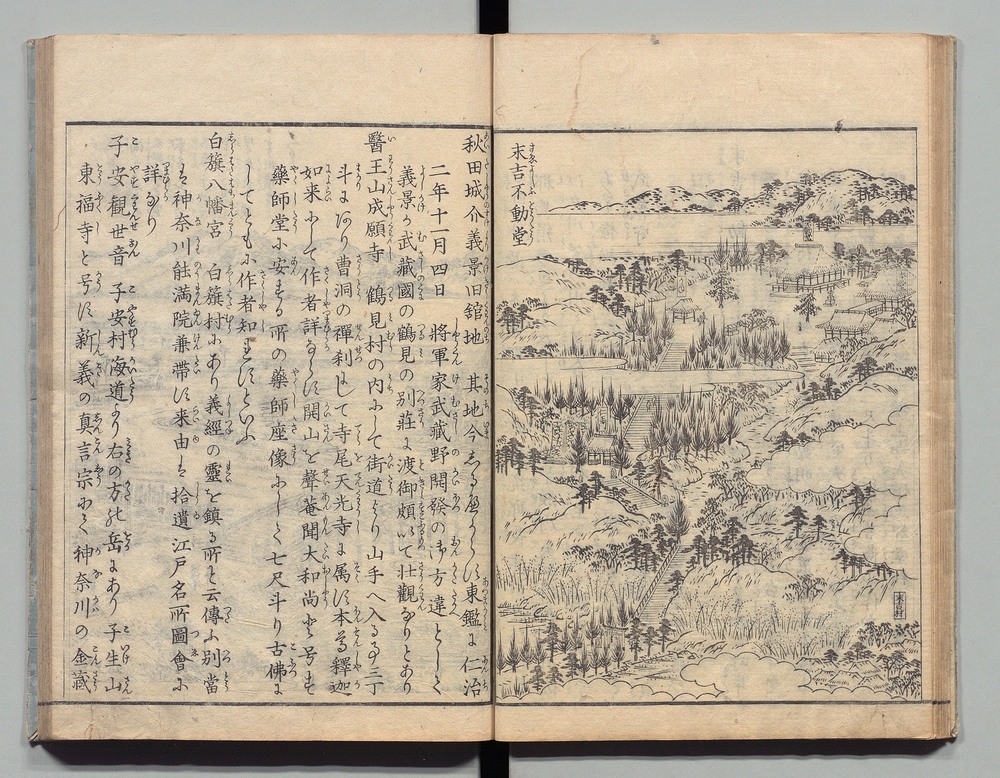 末吉不動堂
末吉村
秋田城介義景旧舘地 其地今さだかならず東鑑に仁治
二年十一月四日 將軍家武藏野開發の御方違として
義景が武藏國の鶴見の別莊に渡御頗以て壮觀なりとあり
醫王山成願寺 鶴見村の内にして街道より山手へ入る事三丁
斗にあり曹洞の禪利にして寺尾天光寺に属す本尊釋迦
如来にして作者詳ならず開山を聲菴聞大和尚と号す
藥師堂に安ずる所の藥師座像にして七尺斗り古佛に
してともに作者知れずといふ
白籏八幡宮 白籏村にあり義經の靈を鎮る所と云傳ふ別當
は神奈川能満院兼帯す来由は拾遺江戸名所圖會に
詳なり
子安觀世音 子安村海道より右の方の岳にあり子生山
東福寺と号す新義の真言宗にて神奈川の金蔵